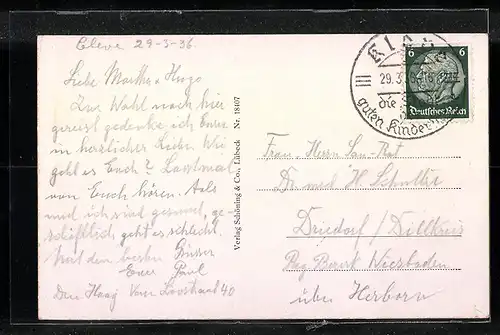 Cleve 29-3-36.
Liebe Martha + Hugo
Zur Wahl nach hier
gereist gedenke ich Eurer
in herzlicher Liebe. Wie
geht es Euch? Lasst mal
von Euch hören. Aals
und ich sind gesund, ge-
schäftlich geht es schlecht.
Mit den besten Grüssen
Euer Paul
Den Haag Van 40
Verlag Schöning & Co., Lübeck Nr. 18407
29.3.
die
guten Kinder
6 6
Deutsches Reich
Frau, Herrn San-Rat
Dr med H. Schultze
Driedorf / Dillkreis
Reg Bezirk Wiesbaden
über Herborn